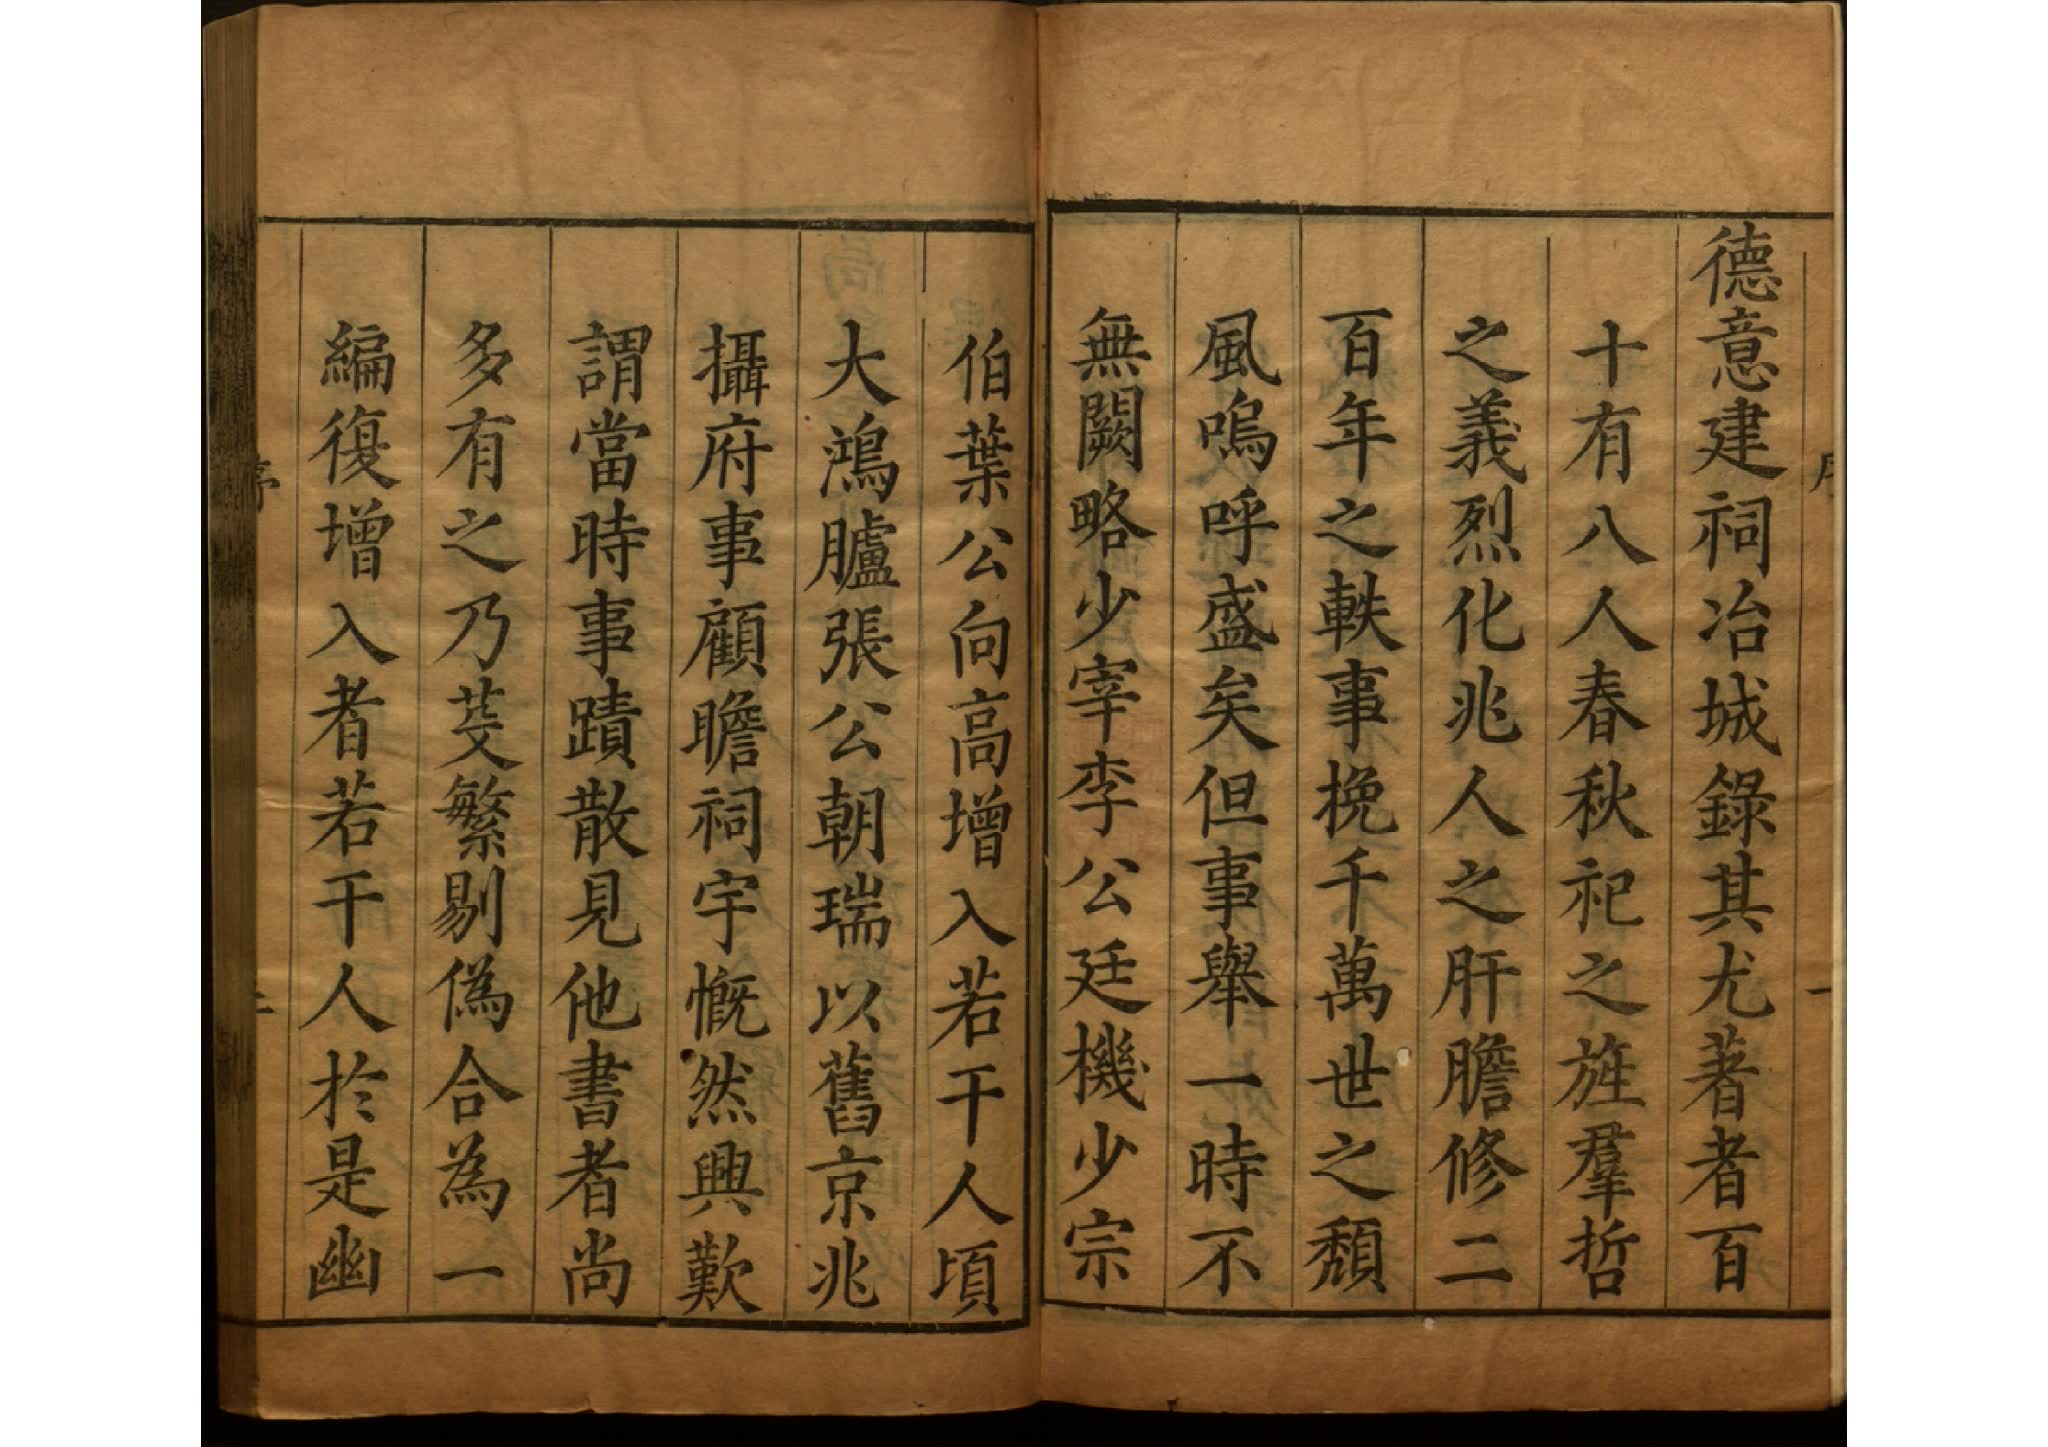 德意建祠冶城錄其尤著者百
十有八人春秋祀之旌羣哲
之義烈化兆人之肝膽修二
百年之軼事挽千萬世之頹
風嗚呼盛矣但事舉一時不
無闕略少宰李公廷機少宗
伯葉公向高增入若干人頃
大鴻臚張公朝瑞以舊京兆
攝府事顧瞻祠宇慨然興歎
謂當時事蹟散見他書者尚
多有之乃芟繁剔僞合為一
編復增入者若干人於是幽